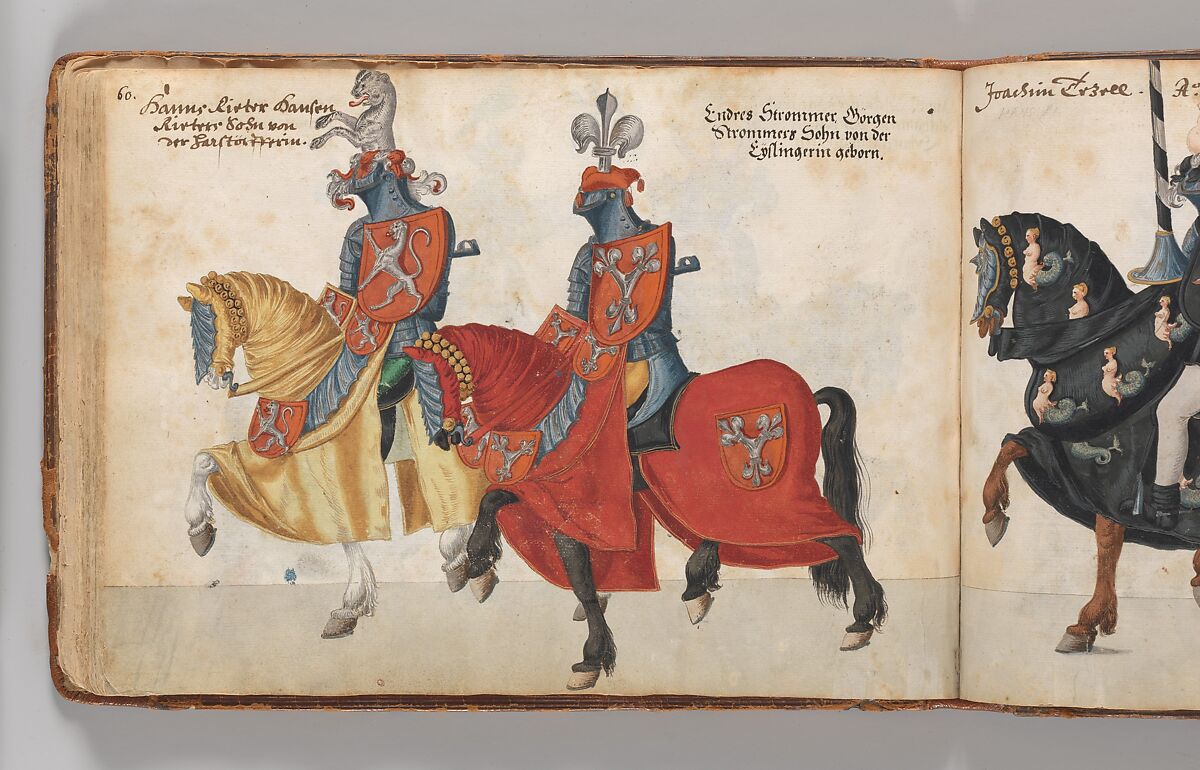 60.
Hanns Rieter Hansen
Rieters Sohn von
der Harstörfferin.
Endres Strommer, Görgen
Strommers Sohn von der
Eyslingerin geborn.
Joachim Tetzell.